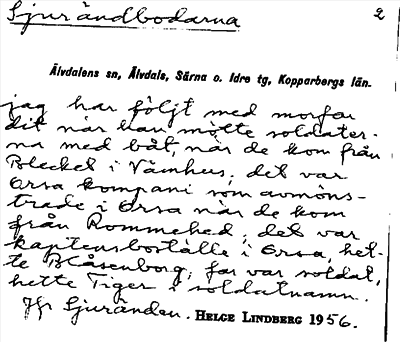 Sjurändbodarna
2
Älvdalens sn, Älvdals, Särna o. Idre tg, Kopparbergs län.
jag har följt med morfar
dit när han mötte soldater-
na med båt, när de kom från
Blecket i Våmhus, det var
Orsa kompani som avmöns-
trade i Orsa när de kom
från Rommehed, det var
kaptensboställe i Orsa, het-
te Blåsenborg; far var soldat,
hette Tiger i soldatnamn.
Jfr Sjuränden. HELGE LINDBERG 1956.